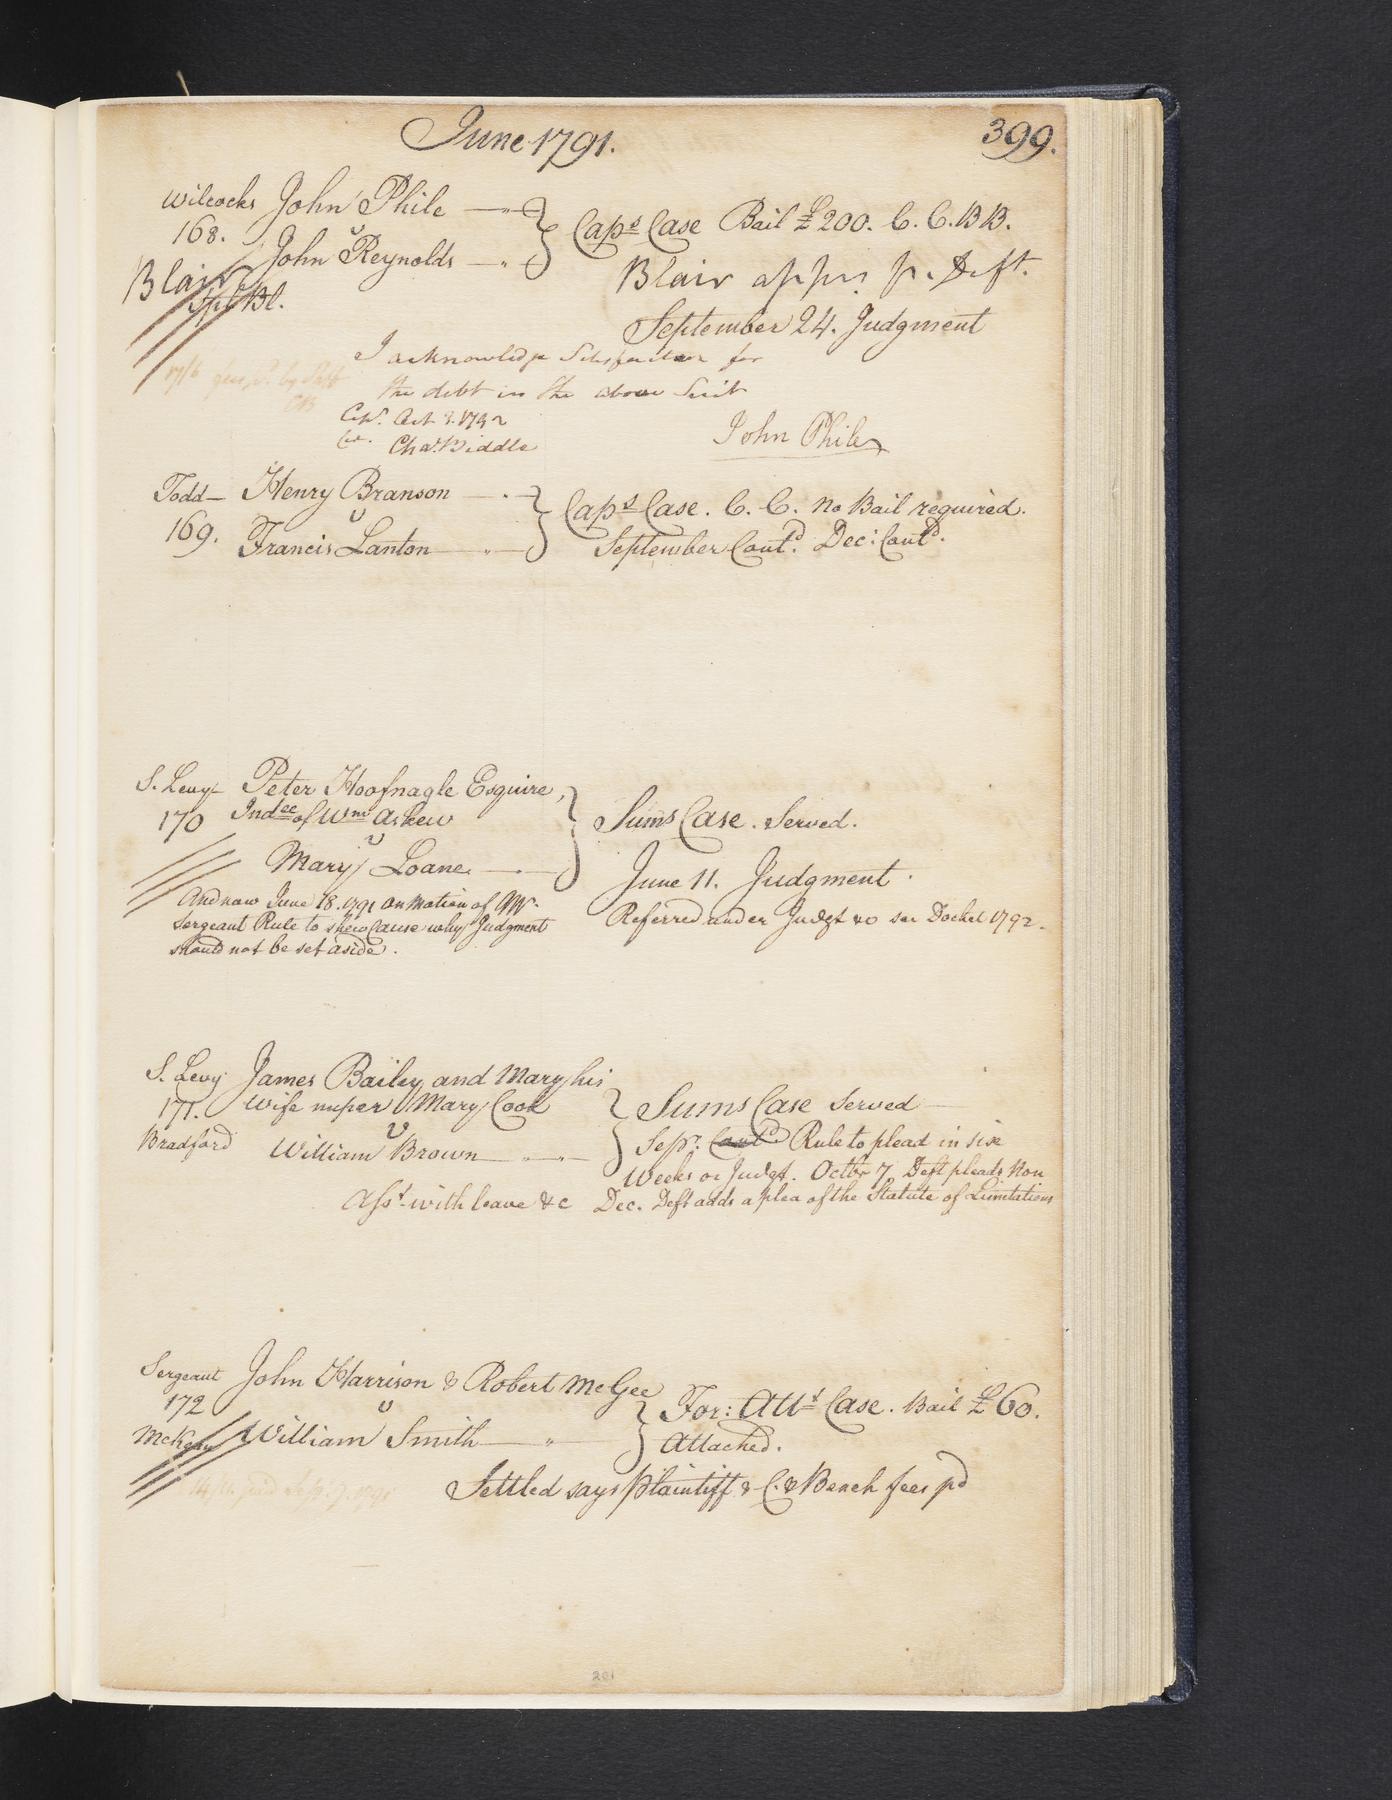 June 1791.
399.
Wilcocks John Phile
168. v
John Reynolds
Blair
Spl Bl.
Caps Case Bail £200. C. C. B B.
Blair apprs pr. Deft.
September 24. Judgment
I acknowledge Satisfaction for
the debt in the above Suit
17/6 fees pd. by Deft
CB
Oct 3. 1792
Chas. Biddle
John Phile
Todd Henry Branson
169. v
Francis Lanton
Caps Case. C. C. No Bail required.
September Contd. Dec: Contd.
S. Levy Peter Hoofnagle Esquire,
170 Indee of Wm Askew
v
Mary Loane
Sums Case. Served.
June 11. Judgment.
And now June 18. 1791 on Motion of Mr.
Sergeant Rule to shew Cause why Judgment
should not be set aside.
Referred under Judgt &c see Docket 1792.
S. Levy James Bailey and Mary his
171. Wife nuper Mary Cook
v
Bradford William Brown
Sums Case Served
Sepr. Contd Rule to plead in six
Weeks or Judgt. Octbr 7. Deft pleads Non
Asst. with leave &c Dec. Deft adds a plea of the Statute of Limitations
Sergeant John Harrison & Robert McGee
172 v
McKean William Smith
For: Attt Case. Bail £60.
Attached.
Settled says Plaintiff & C. & Bench fees pd
paid Sepr. 7. 1791
201